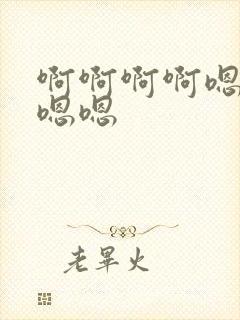 啊啊啊啊嗯
嗯嗯
老畢火